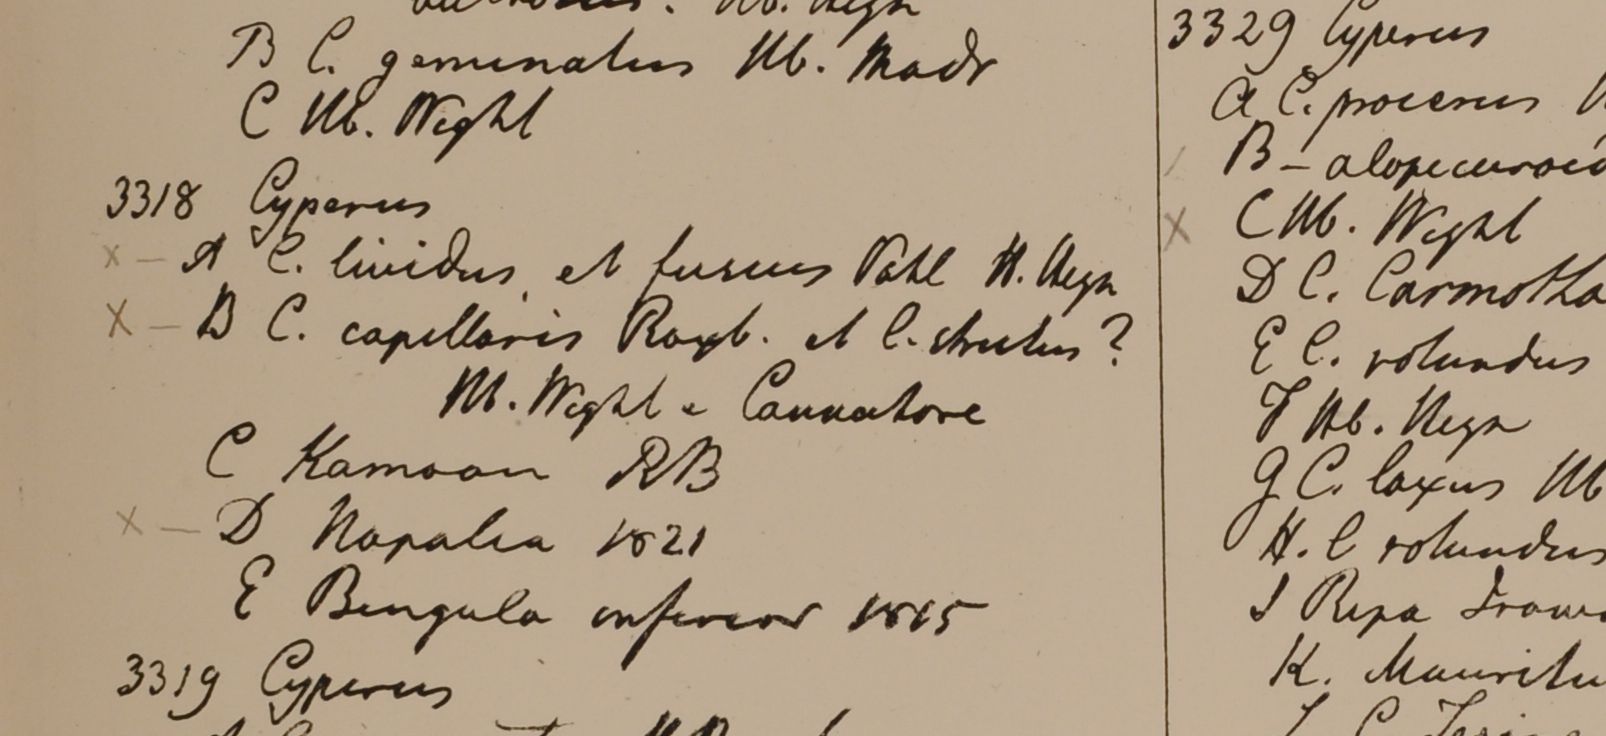 B C. geminatus Hb. Madr
C Hb. Wight
3318 Cyperus
x - A C. lividus, et fuscus Vahl H. Heyn
X - B C. capillaris Roxb. et C. strictus?
Hb. Wight e
C Kamaon RB
x - D Napalia 1821
E Bengala inferior 1815
3319 Cyperus
3329 Cyperus
A C. procerus H
B - alopecuroid
X C Hb. Wight
D C. Carmotha
E C. rotundus
F Hb. Heyn
G C. laxus Hb
H. C rotundus
I Ripa Irawa
K. Mauritiu